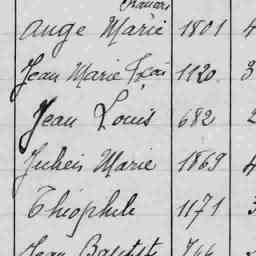 Ange Marie 1801 4
Jean Marie Fçois 1120 3
Jean Louis 682 2
Julien Marie 1869 4
Théophile 1171 3
Jean Baptist